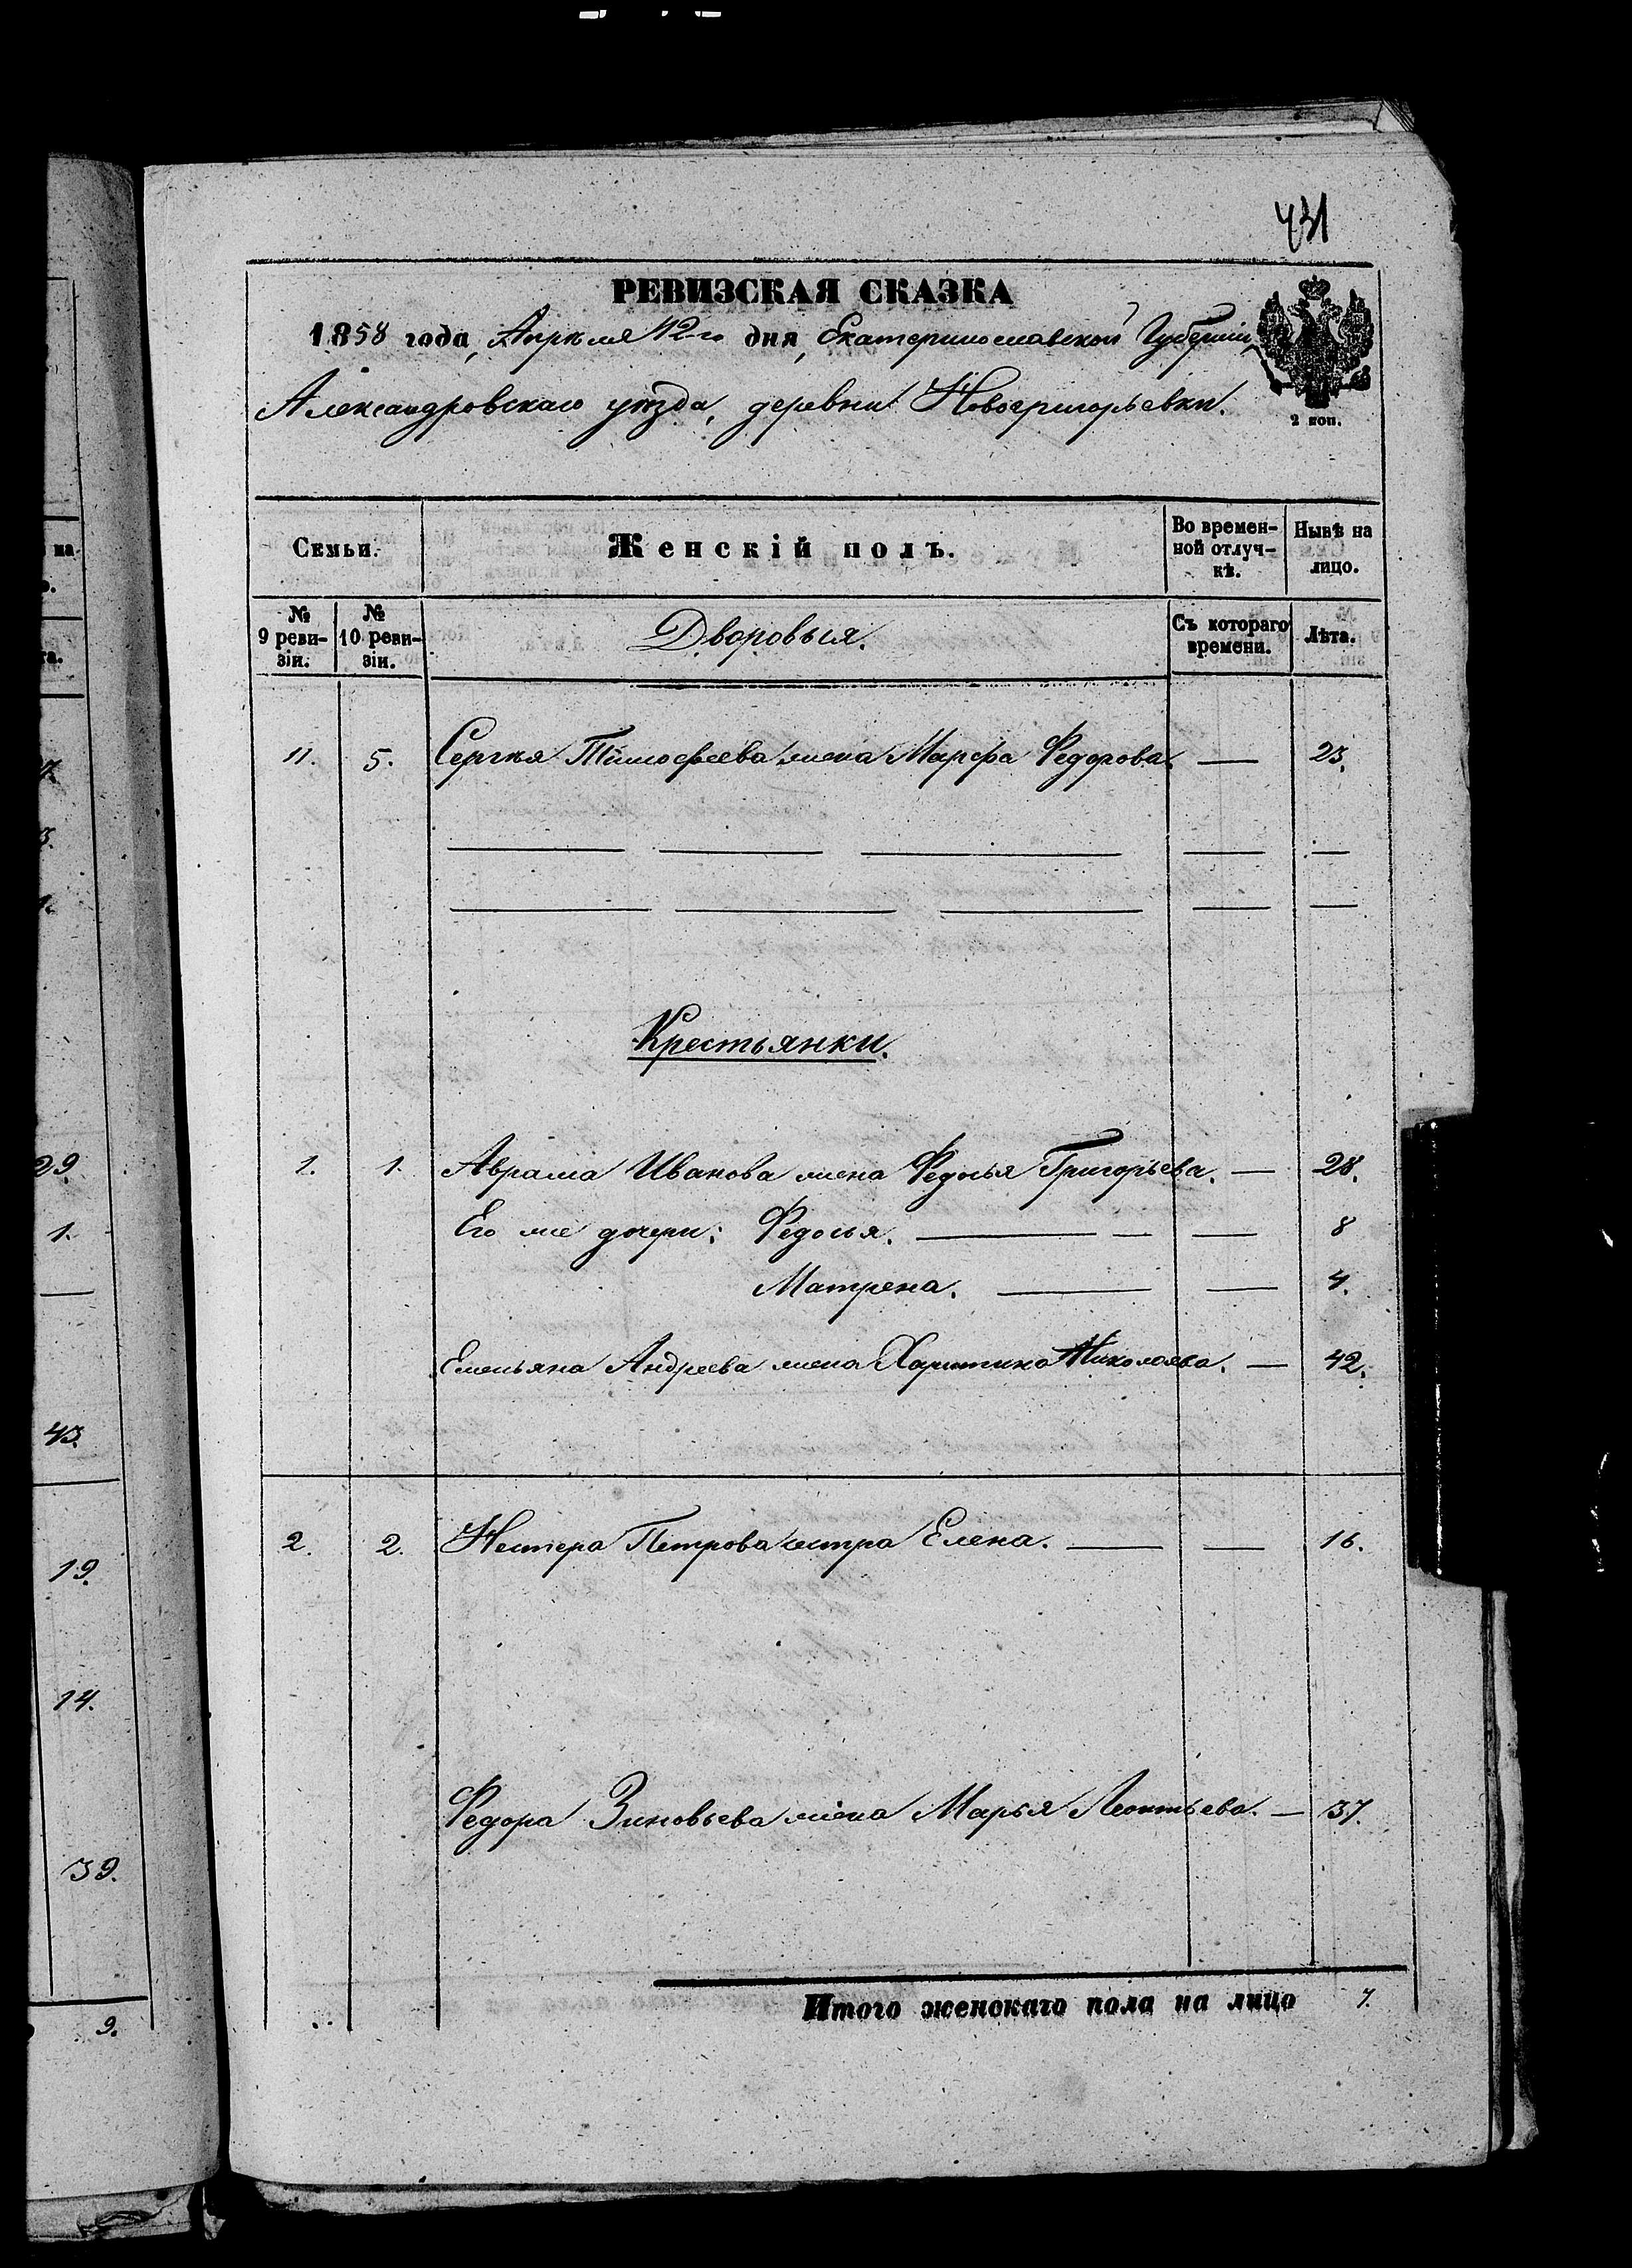 431
РЕВИЗСКАЯ СКАЗКА
1858 года, Апрѣля 12-го дня, Екатеринославской Губерніи,
Александровскаго уѣзда, деревни Новогригорьевки.
2 коп.
Семьи. Женскій полъ. Во времен-ной отлуч-кѣ. Нынѣ на лицо.
№ 9 реви-зіи. № 10 реви-зіи. Дворовыя. Съ котораго времени. Лѣта.
11. 5. Сергѣя Тимофеева жена Марфа Федорова. — 23.
Крестьянки.
1. 1. Аврама Иванова жена Федосья Григорьева. — 28.
Его же дочери: Федосья. — — — 8
Матрена. — — 4.
Емельяна Андреева жена Харитина Николаева. — 42.
2. 2. Нестера Петрова сестра Елена. — — 16.
Федора Зиновьева жена Марья Леонтьева. — 37.
Итого женскаго пола на лицо 7.
на
29.
1.
43.
19.
14.
39.
9.